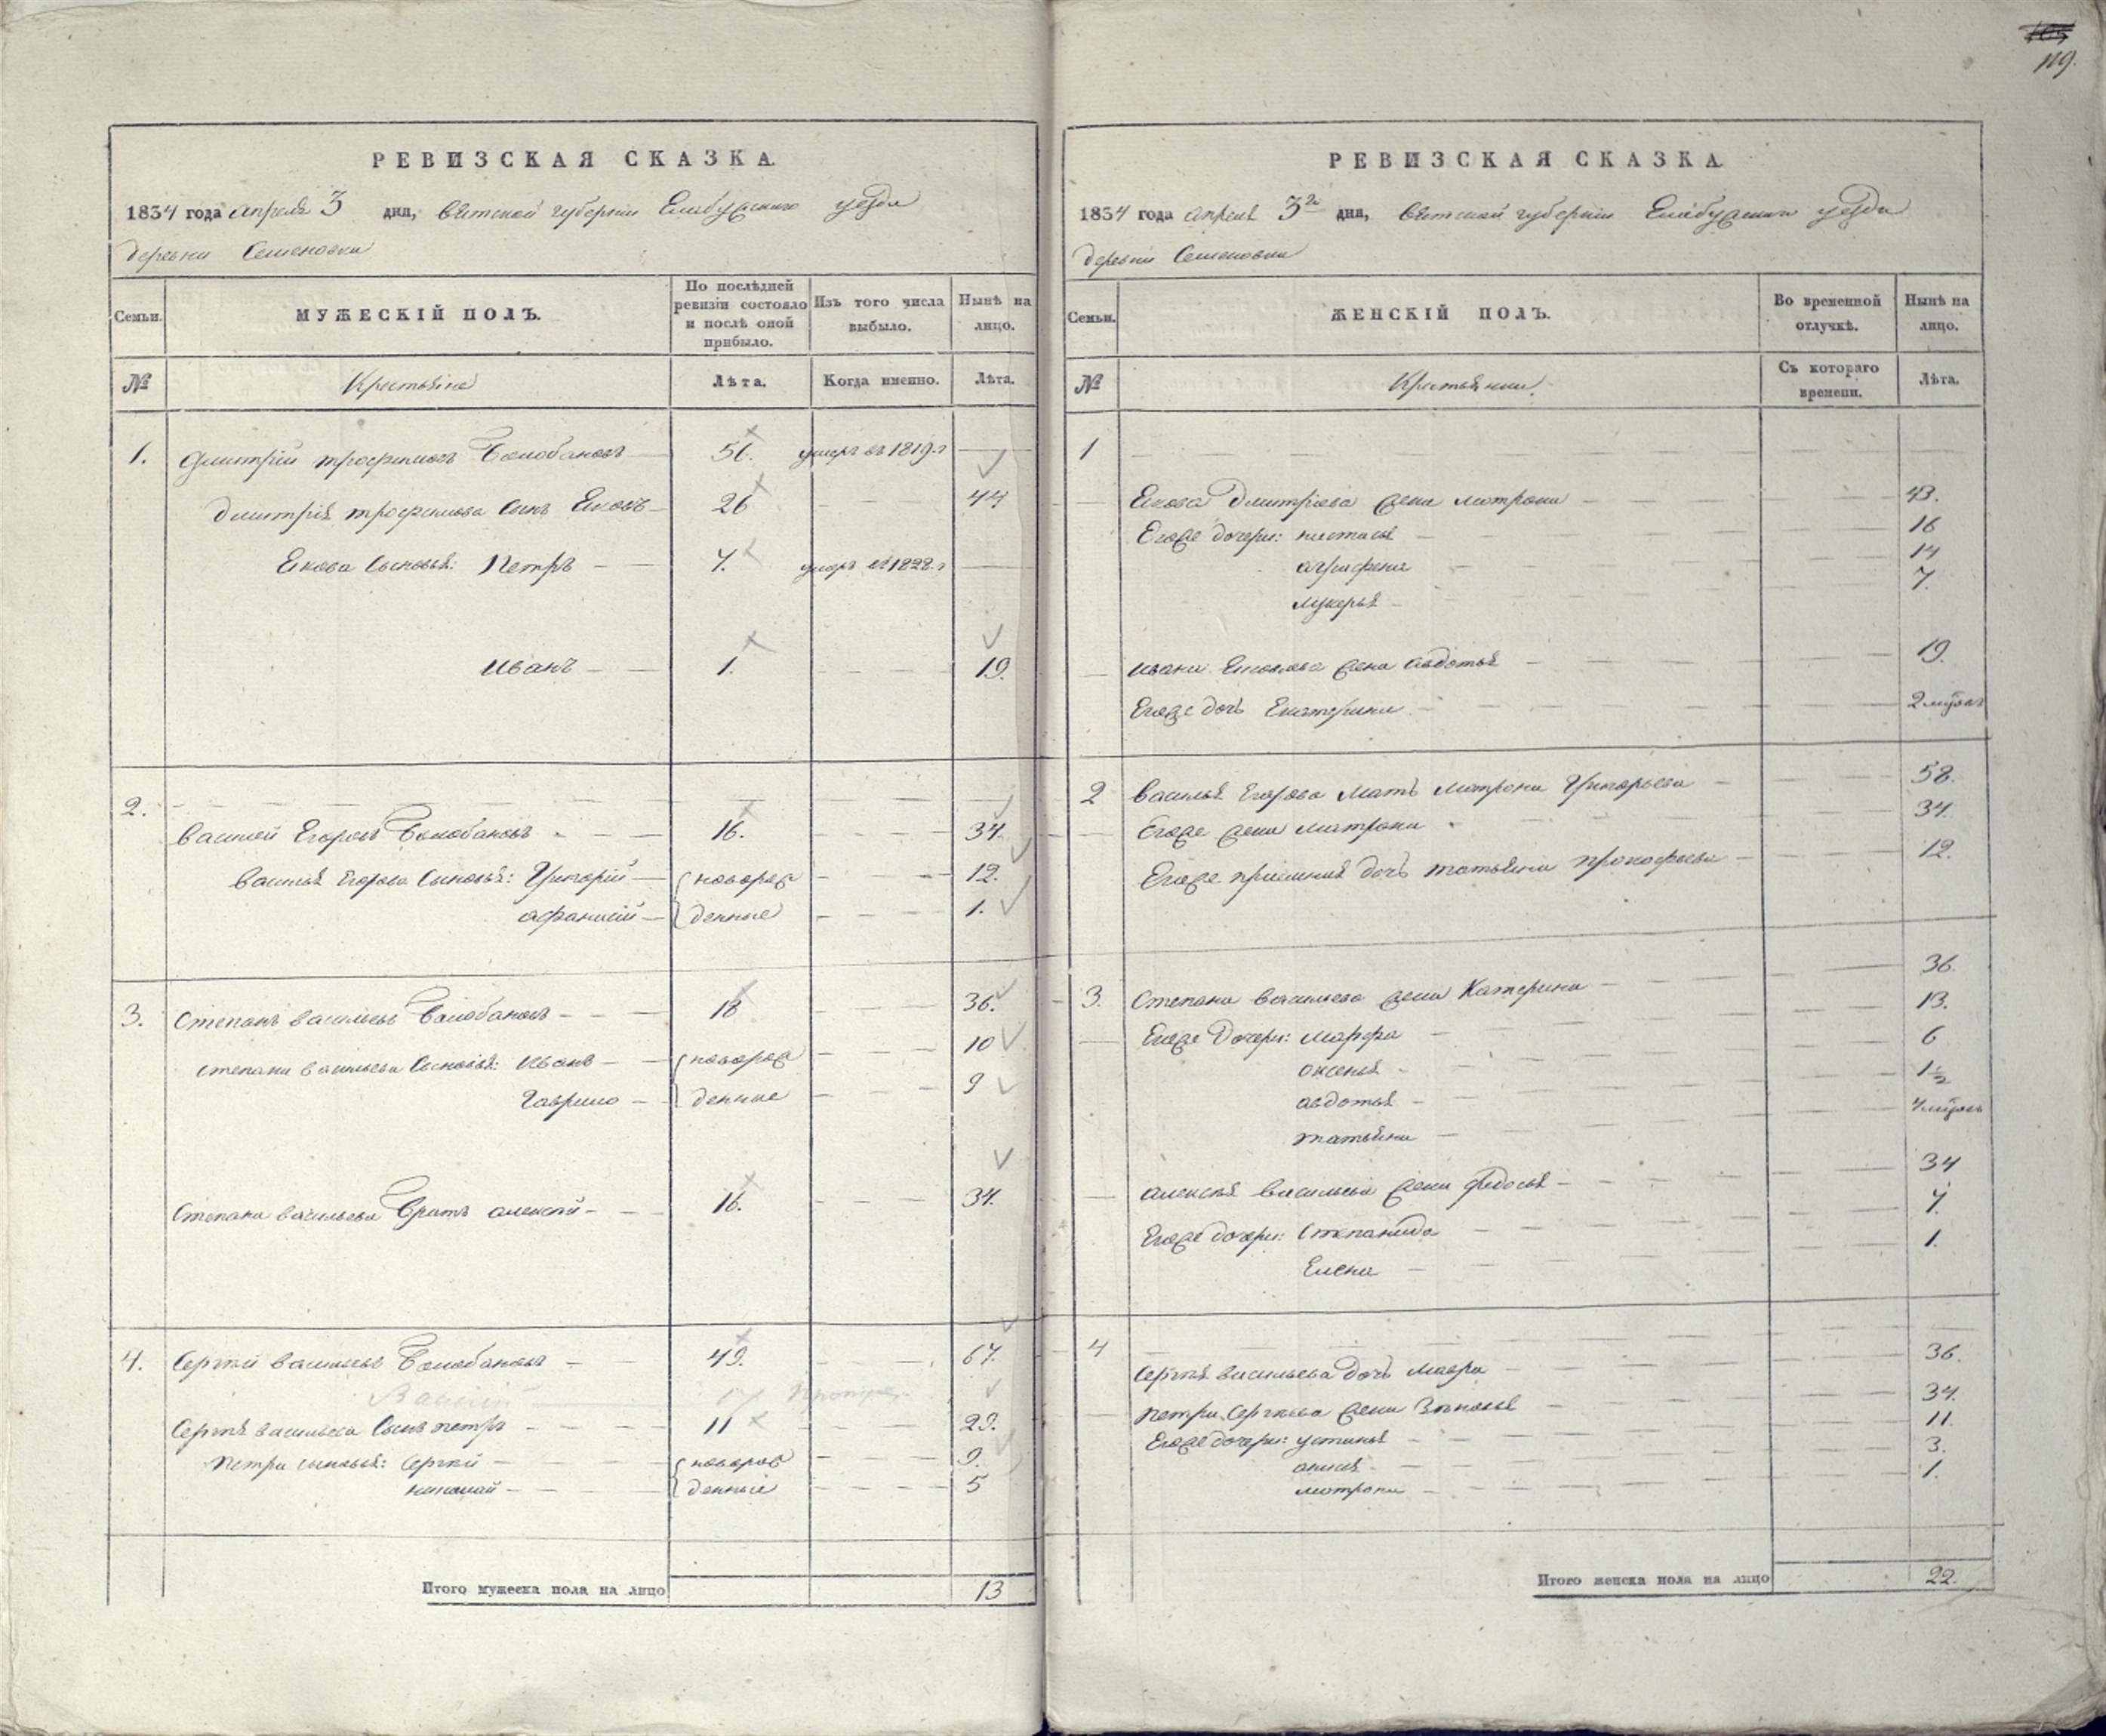 119.
РЕВИЗСКАЯ СКАЗКА.
1834 года апреля 3 дня, Вятской губернии Елабужского уезда
деревни Семеновки
Семьи.
МУЖЕСКІЙ ПОЛЪ.
По послѣдней ревизіи состояло и послѣ оной прибыло.
Изъ того числа выбыло.
Нынѣ на лицо.
№ Крестьяне Лѣта. Когда именно. Лѣта.
1. Дмитрий Трофимовъ Болобановъ 56. умеръ въ 1819.г
Дмитрия Трофимова сынъ Яковъ 26 44
Якова сыновья: Петръ 7. умеръ въ 1828.г
Иванъ 1. 19.
2.
Василей Егоровъ Болобановъ 16. 34.
Василья Егорова сыновья: Григорий новорож 12.
Афанасий денные 1.
3. Степанъ Васильевъ Болобановъ 18 36.
Степана Васильева сыновья: Иванъ новорож 10
Гаврило денные 9
Степана Васильева братъ Алексей 16. 34.
4. Сергей Васильевъ Болобановъ 49. 67.
Василий
Сергея Васильева сынъ Петръ 11 29.
Петра сыновья: Сергей новорож 9.
Николай денные 5
Итого мужеска пола на лицо 13
РЕВИЗСКАЯ СКАЗКА.
1834 года апреля 3го дня, Вятской губернии Елабужскаго уезда
деревни Семеновки
Семьи.
ЖЕНСКІЙ ПОЛЪ.
Во временной отлучкѣ.
Нынѣ на лицо.
№ Крестьянки. Съ котораго времени. Лѣта.
1
Якова Дмитриева жена Матрона 43.
Егоже дочери: Настасья 16
Аграфена 14
Лукерья 7.
Ивана Яковлева жена Авдотья 19.
Егоже дочь Екатерина 2 мѣсяц
2 Василья Егорова мать Матрона Григорьева 58.
Егоже жена Матрона 34.
Егоже приемная дочь Татьяна Прокофьева 12.
3. Степана Васильева жена Катерина 36.
Егоже дочери: Марфа 13.
Оксенья 6
Авдотья 1½
Татьяна 4 мѣсяц
Алексея Васильева жена Федосья 34
Егоже дочери: Степанида 7.
Елена 1.
4
Сергея Васильева дочь Мавра 36.
Петра Сергеева жена Зеновья 34.
Егоже дочери: Устинья 11.
Анна 3.
Матрона 1.
Итого женска пола на лицо 22.